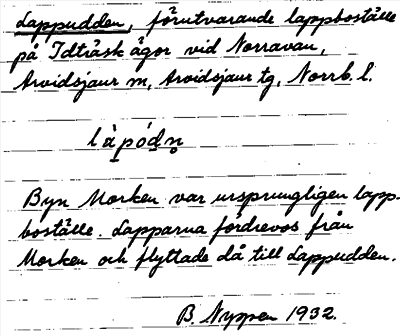 Lappudden, förutvarande lappboställe
på Idträsk ägor vid Norravan,
Arvidsjaur sn, Arvidsjaur tg, Norrb. l.
làpód̲n̥
Byn Morken var ursprungligen lapp-
boställe. Lapparna fördrevos från
Morken och flyttade då till Lappudden.
B. Nyppen 1932.